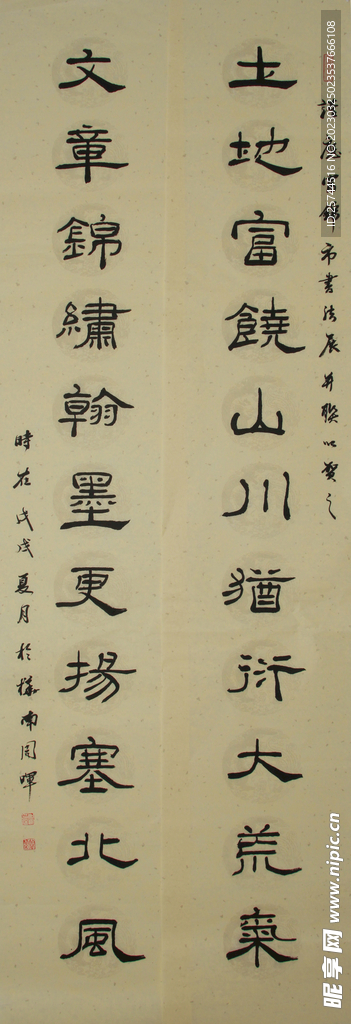 土地富饒山川猶衍大荒氣
市書法展并聯以賀之
文章錦繡翰墨更揚塞北風
時在戊戌夏月於樺南周暉
ID:25744516 NO:20230325023537666108
昵享网 www.nipic.cn